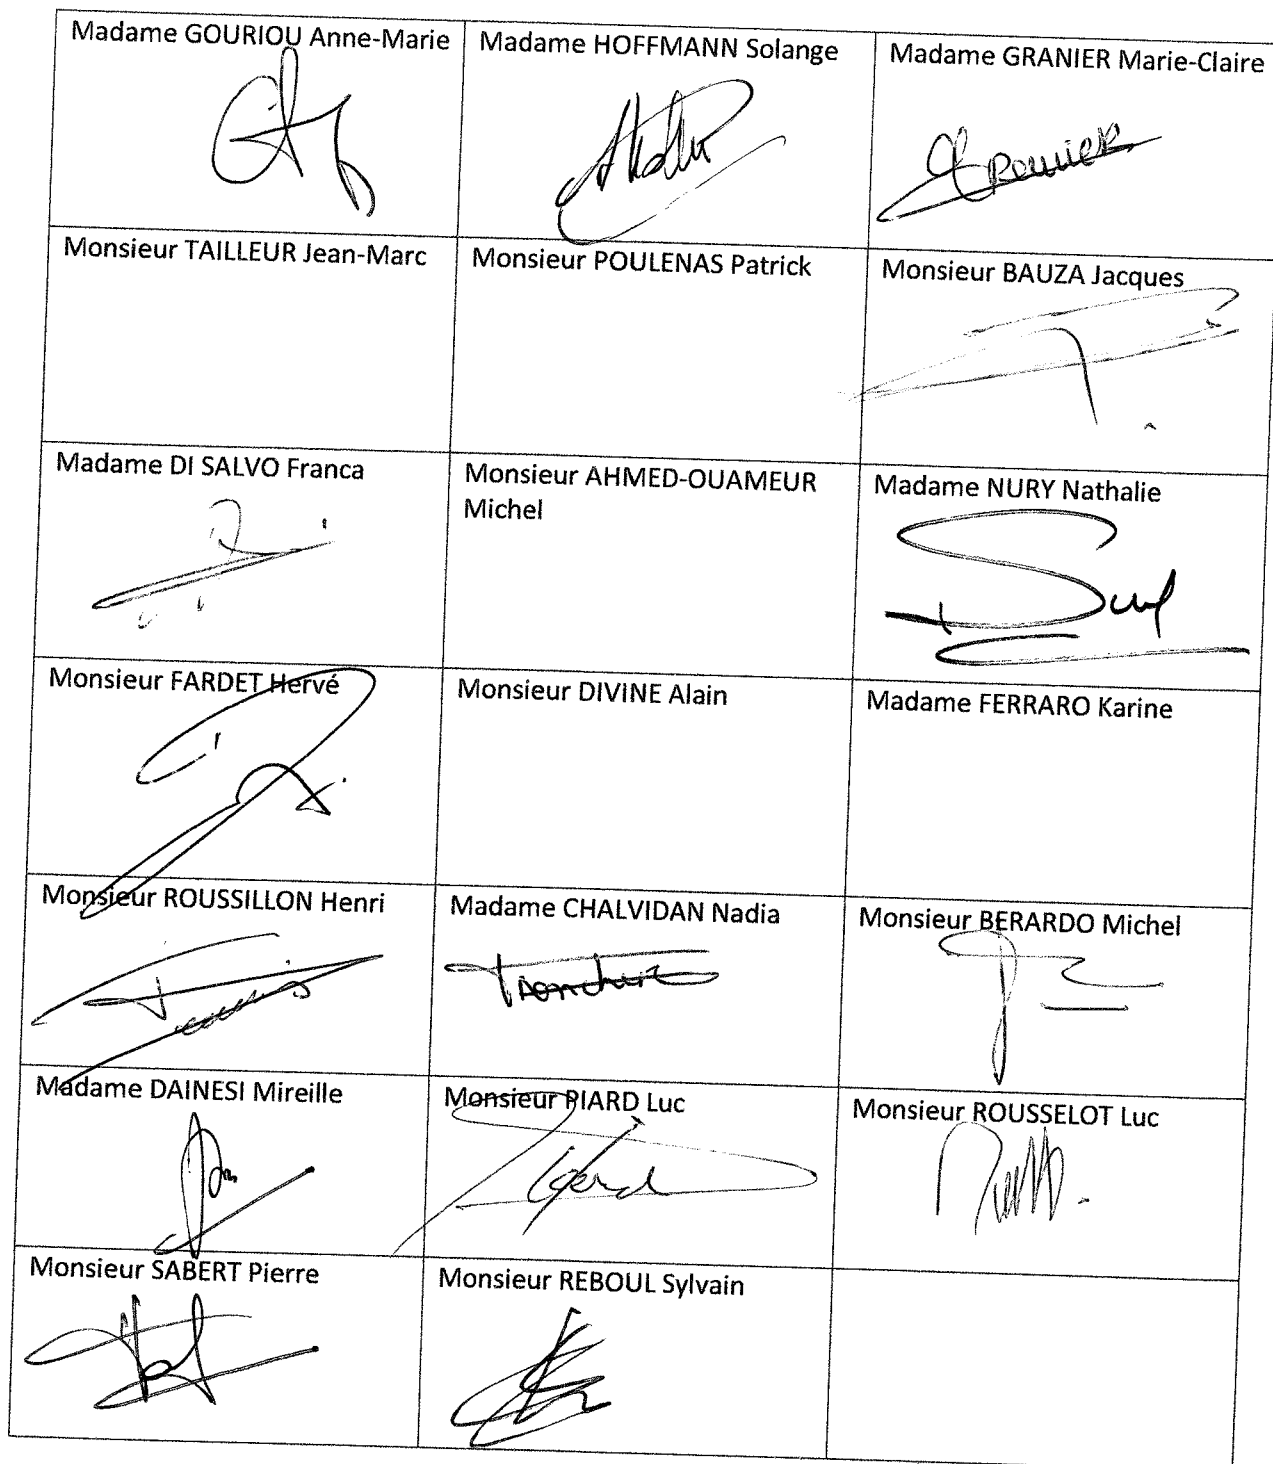 Madame GOURIOU Anne-Marie
Madame HOFFMANN Solange
Madame GRANIER Marie-Claire
Granier
Monsieur TAILLEUR Jean-Marc
Monsieur POULENAS Patrick
Monsieur BAUZA Jacques
Madame DI SALVO Franca
Monsieur AHMED-OUAMEUR
Michel
Madame NURY Nathalie
Monsieur FARDET Hervé
Monsieur DIVINE Alain
Madame FERRARO Karine
Monsieur ROUSSILLON Henri
Madame CHALVIDAN Nadia
Monsieur BERARDO Michel
Madame DAINESI Mireille
Monsieur PIARD Luc
Monsieur ROUSSELOT Luc
Monsieur SABERT Pierre
Monsieur REBOUL Sylvain